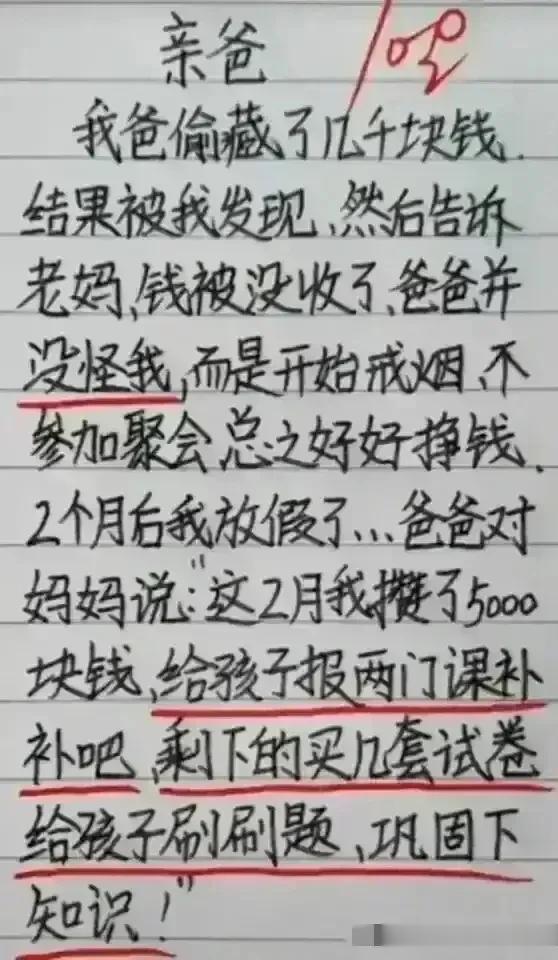 亲爸
我爸偷藏了几千块钱.
结果被我发现,然后告诉
老妈,钱被没收了,爸爸并
没怪我,而是开始戒烟、不
参加聚会,总之好好挣钱.
2个月后我放假了...爸爸对
妈妈说:"这2月我攒了5000
块钱,给孩子报两门课补
补吧,剩下的买几套试卷
给孩子刷刷题、巩固下
知识!"